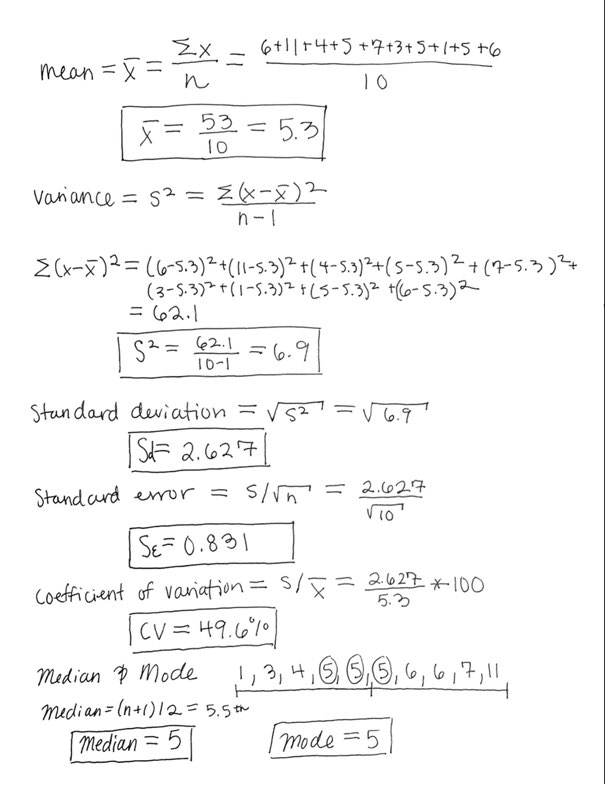 mean = x̄ = Σx/n = 6+11+4+5+7+3+5+1+5+6/10
x̄ = 53/10 = 5.3
variance = S² = Σ(x-x̄)²/n-1
Σ(x-x̄)² = (6-5.3)²+(11-5.3)²+(4-5.3)²+(5-5.3)²+(7-5.3)²+
(3-5.3)²+(1-5.3)²+(5-5.3)²+(6-5.3)²
= 62.1
S² = 62.1/10-1 = 6.9
Standard deviation = √S² = √6.9
Sd = 2.627
Standard error = S/√n = 2.627/√10
SE = 0.831
Coefficient of variation = S/x̄ = 2.627/5.3 *100
CV = 49.6%
Median & Mode 1, 3, 4, 5, 5, 5, 6, 6, 7, 11
Median = (n+1)/2 = 5.5th
Median = 5 mode = 5